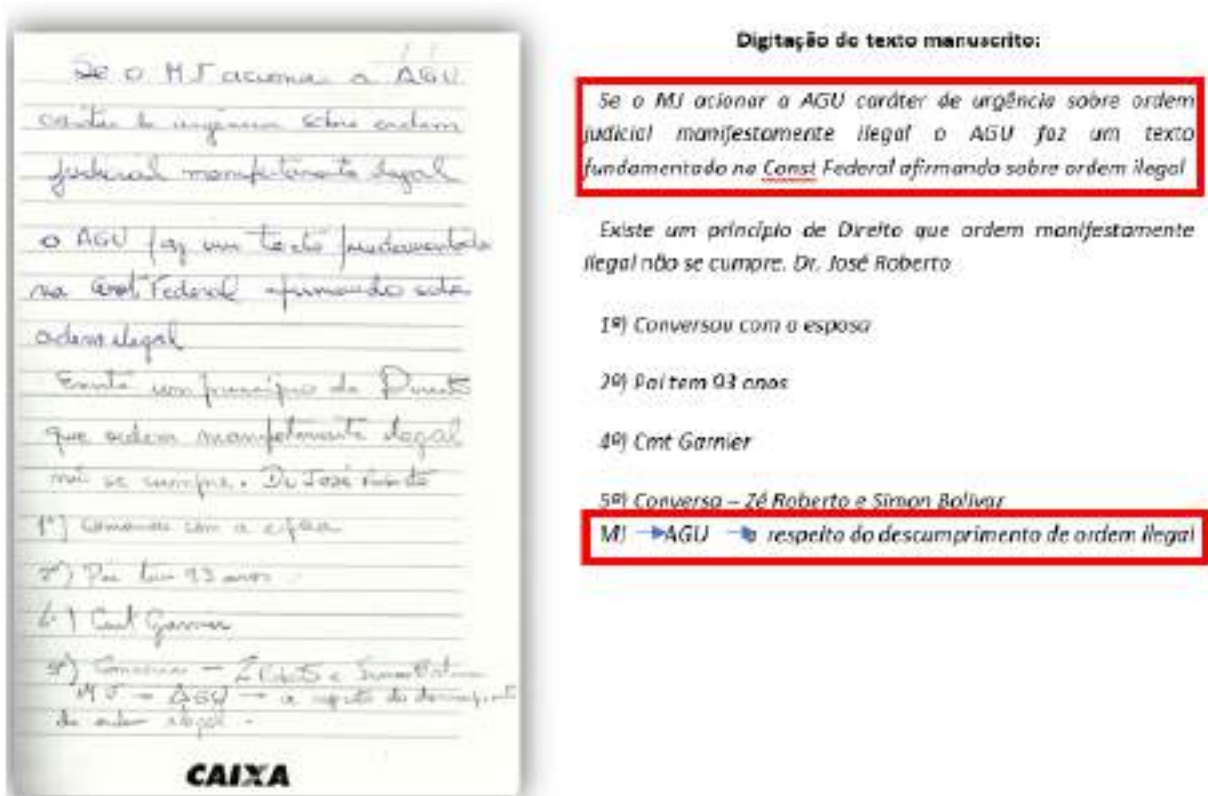 Se o MJ acionar a AGU
caráter de urgência sobre ordem
judicial manifestamente ilegal
o AGU faz um texto fundamentado
na Const Federal afirmando sobre
ordem ilegal
Existe um princípio de Direito
que ordem manifestamente ilegal
não se cumpre. Dr José Roberto
1º) Conversou com a esposa
2º) Pai tem 93 anos
4º) Cmt Garnier
5º) Conversa - Zé Roberto e Simon Bolivar
MJ → AGU → a respeito do descumprimento
de ordem ilegal.
CAIXA
Digitação do texto manuscrito:
Se o MJ acionar a AGU caráter de urgência sobre ordem
judicial manifestamente ilegal o AGU faz um texto
fundamentado na Const Federal afirmando sobre ordem ilegal
Existe um princípio de Direito que ordem manifestamente
ilegal não se cumpre. Dr. José Roberto
1º) Conversou com a esposa
2º) Pai tem 93 anos
4º) Cmt Garnier
5º) Conversa – Zé Roberto e Simon Bolivar
MJ → AGU → a respeito do descumprimento de ordem ilegal